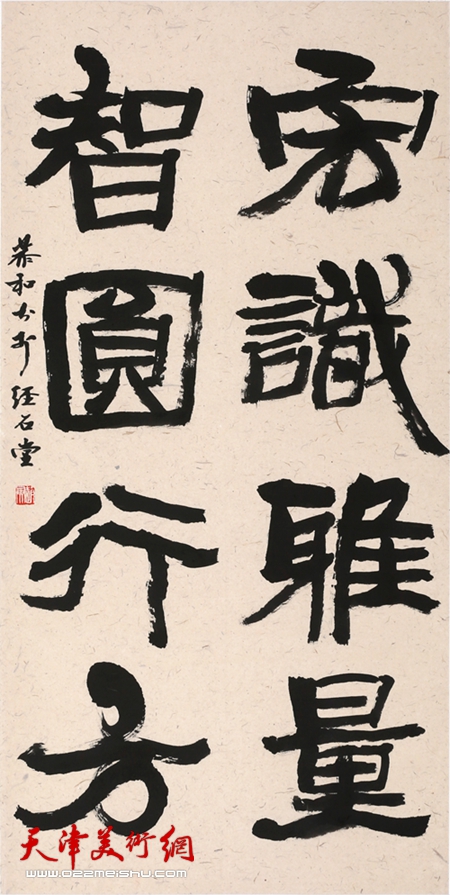 宏識雅量
智圓行方
石堂
天津美術網
www.022meishu.com